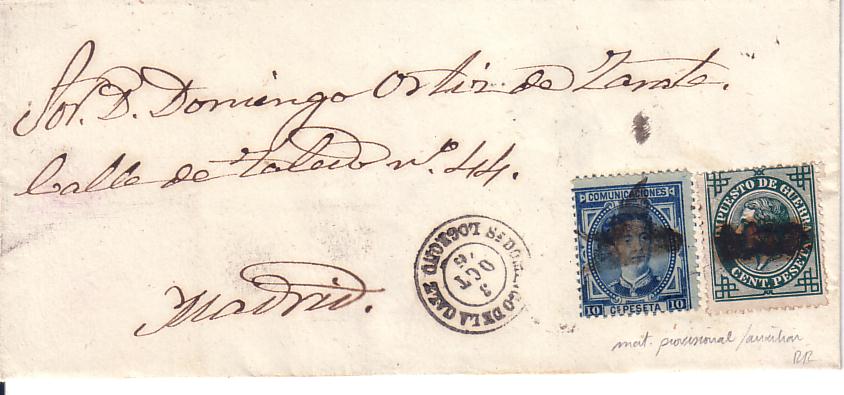 Sor. D. Domingo Ortiz de Zarate.
Calle de Toledo nº. 44.
Madrid.
STO DOMINGO DE LA CALZ LOGROÑO
OCT
COMUNICACIONES
10 CS PESETA 10
IMPUESTO DE GUERRA
CENT. PESETA
mat. provisional / auxiliar
RR